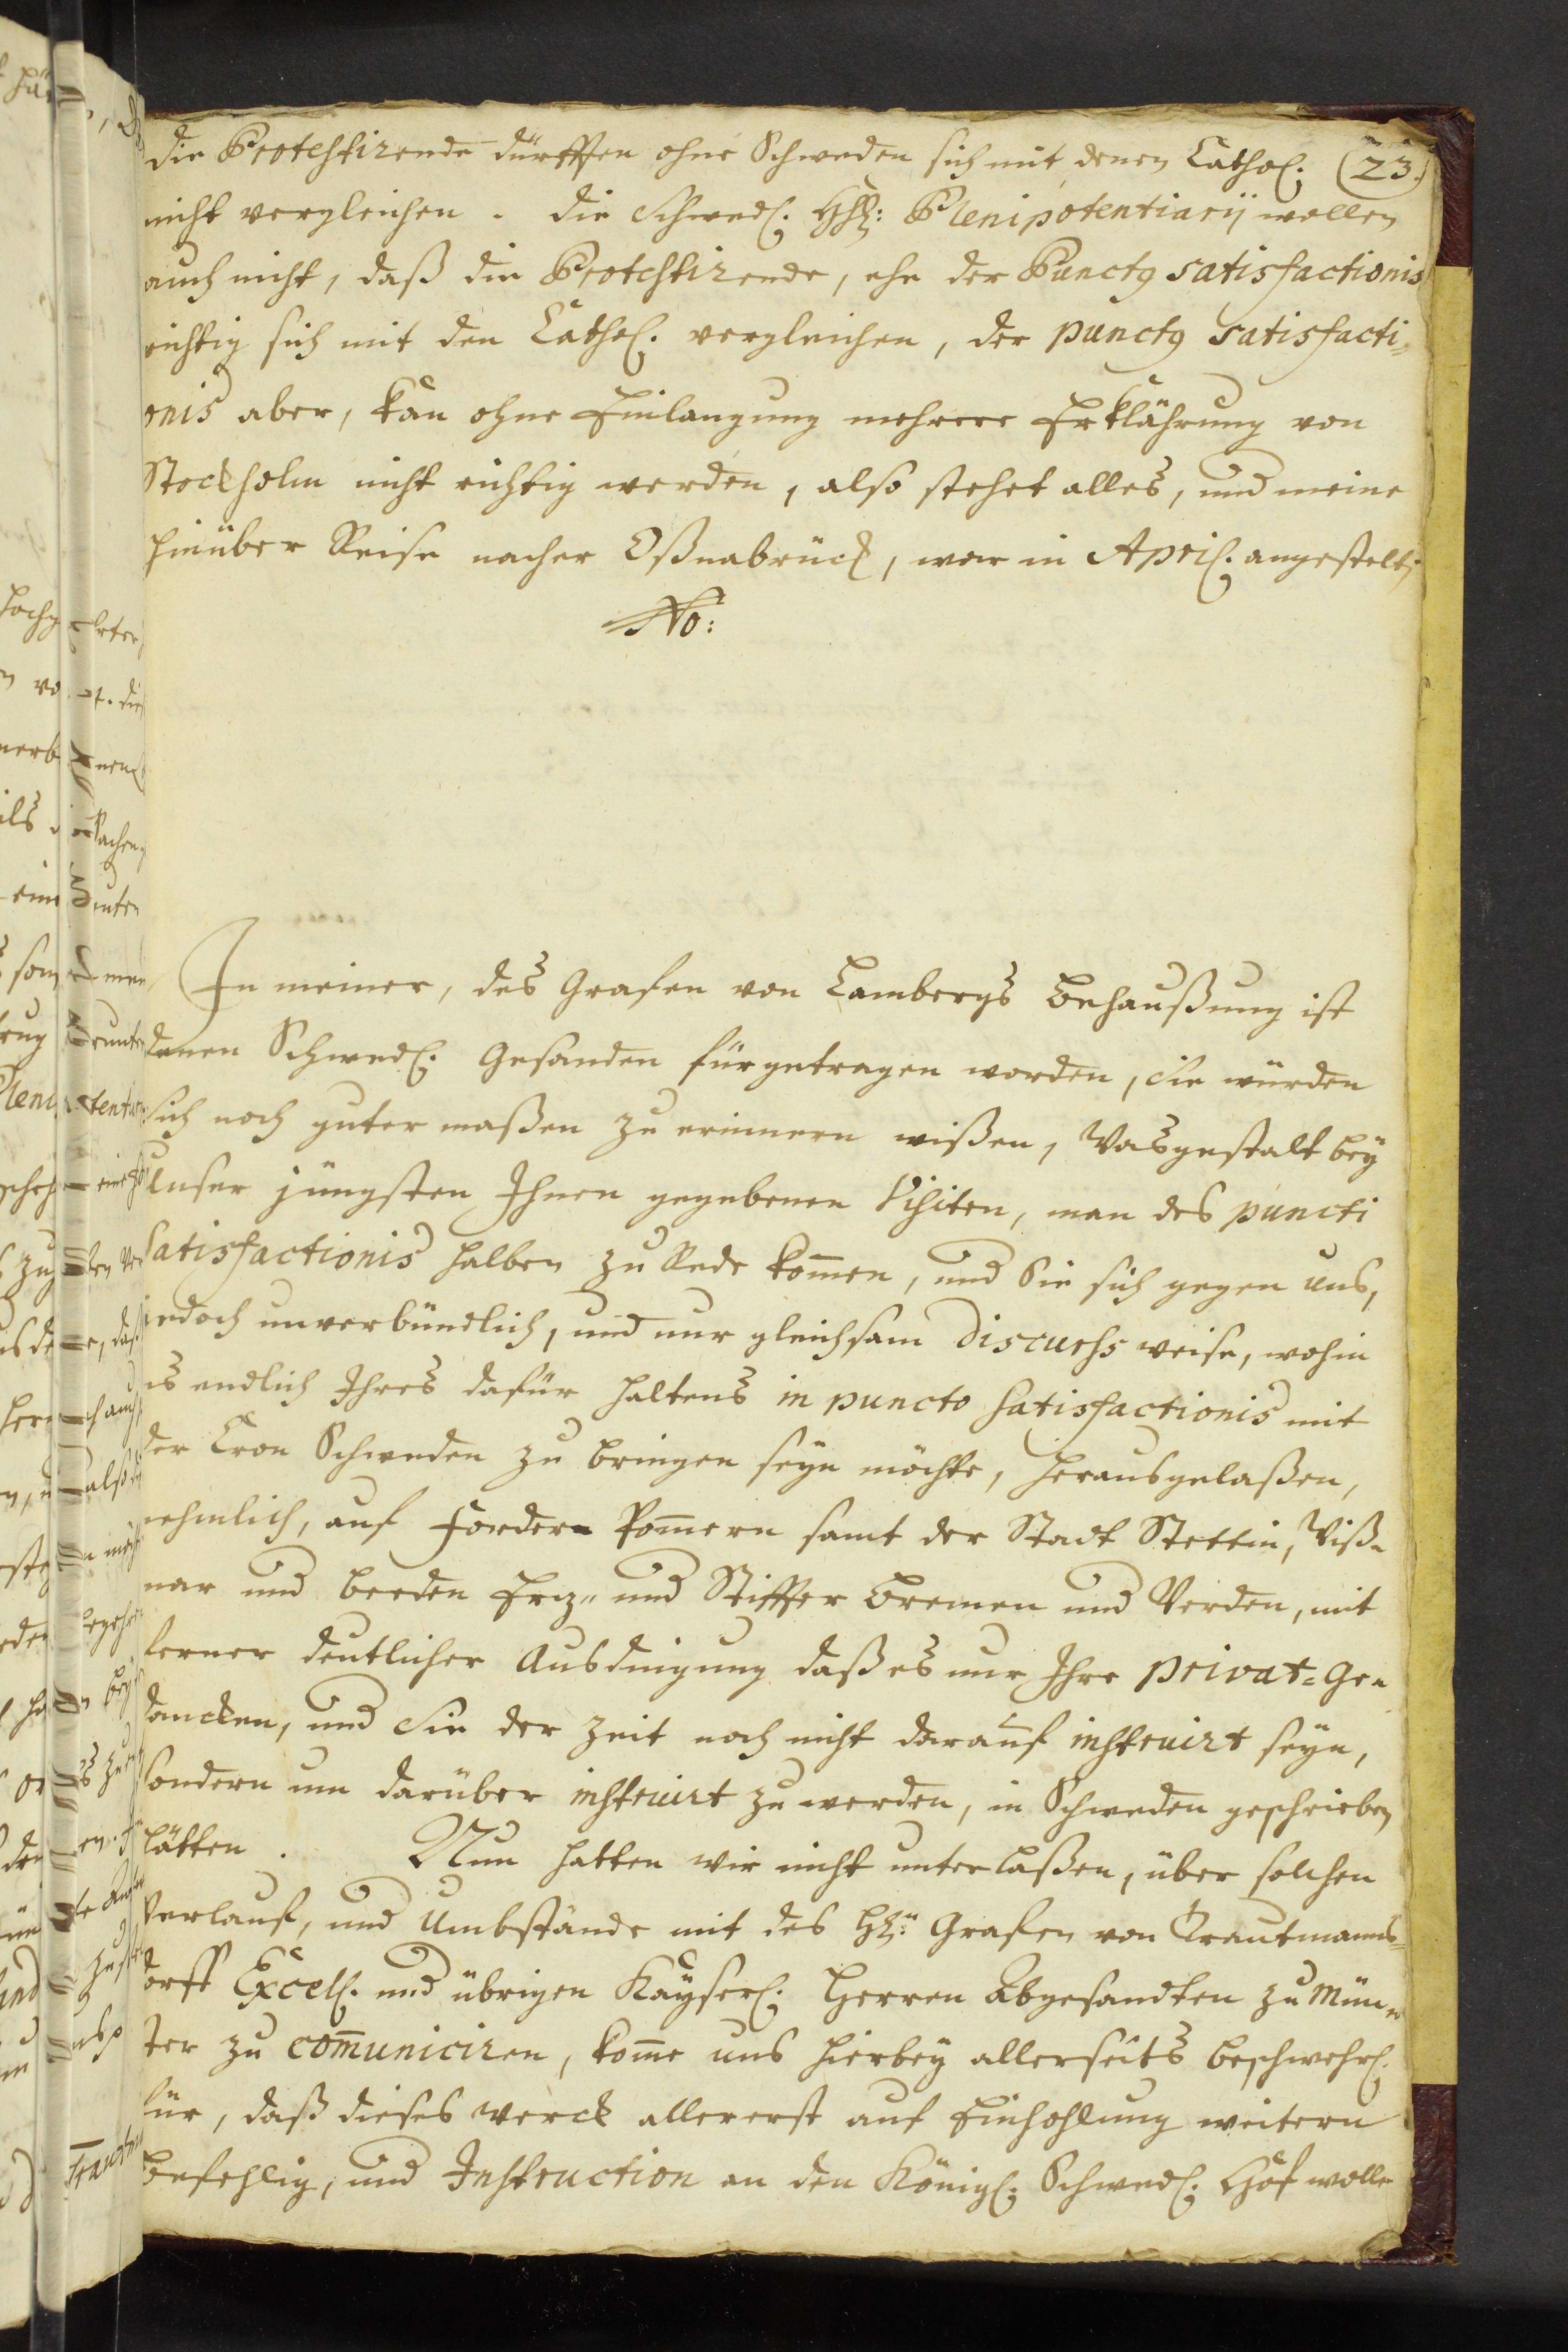 die Protestirende dürffen ohne Schweden sich mit denen Cathol. (23.)
nicht vergleichen. die Schwed. HH: Plenipotentiarij wollen
auch nicht, daß die Protestirende, ehe der Punctus satisfactionis
richtig sich mit den Cathol. vergleichen, der punctus satisfacti=
onis aber, kan ohne Einlangung mehrere Erklährung von
Stockholm nicht richtig werden, also stehet alles, und meine
hinüber Reise nacher Oßnabrück, war in April. angestelt.
No:
In meiner, des Grafen von Lambergs behaußung ist
denen Schwed. Gesanden fürgetragen worden, Sie würden
sich noch guter maßen zu erinnern wißen, Wasgestalt bey
Unser jüngsten Ihnen gegebenen Visiten, man des puncti
Satisfactionis halben zu Rede kom̄en, und Sie sich gegen uns,
iedoch unverbündlich, und nur gleichsam discurs weise, wohin
es endlich Ihres dafür haltens in puncto satisfactionis mit
der Cron Schweden zu bringen seyn möchte, herausgelaßen,
nehmlich, auf Forder= Pom̄ern samt der Stadt Stettin, Wiß=
mar und beeden Erz= und Stiffter Bremen und Verden, mit
ferner deutlicher Ausdingung daß es nur Ihre privat=Ge=
dancken, und Sie der Zeit noch nicht darauf instruirt seyn,
sondern um darüber instruirt zu werden, in Schweden geschrieben
hätten. Nun hatten wir nicht unterlaßen, über solchen
Verlauf, und Umbstände mit des H: Grafen von Trautmanns=
dorff Excell. und übrigen Kayserl. Herren Abgesandten zu Mün=
ster zu com̄uniciren, kom̄e uns hierbey allerseits beschwehrl.
für, daß dieses Werck allererst auf Einhohlung weitern
befehlig, und Instruction an den Königl. Schwed. Hof wolle